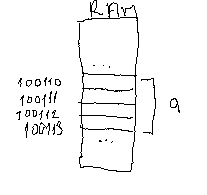 RAM
...
100110
100111
100112
100113
a
...